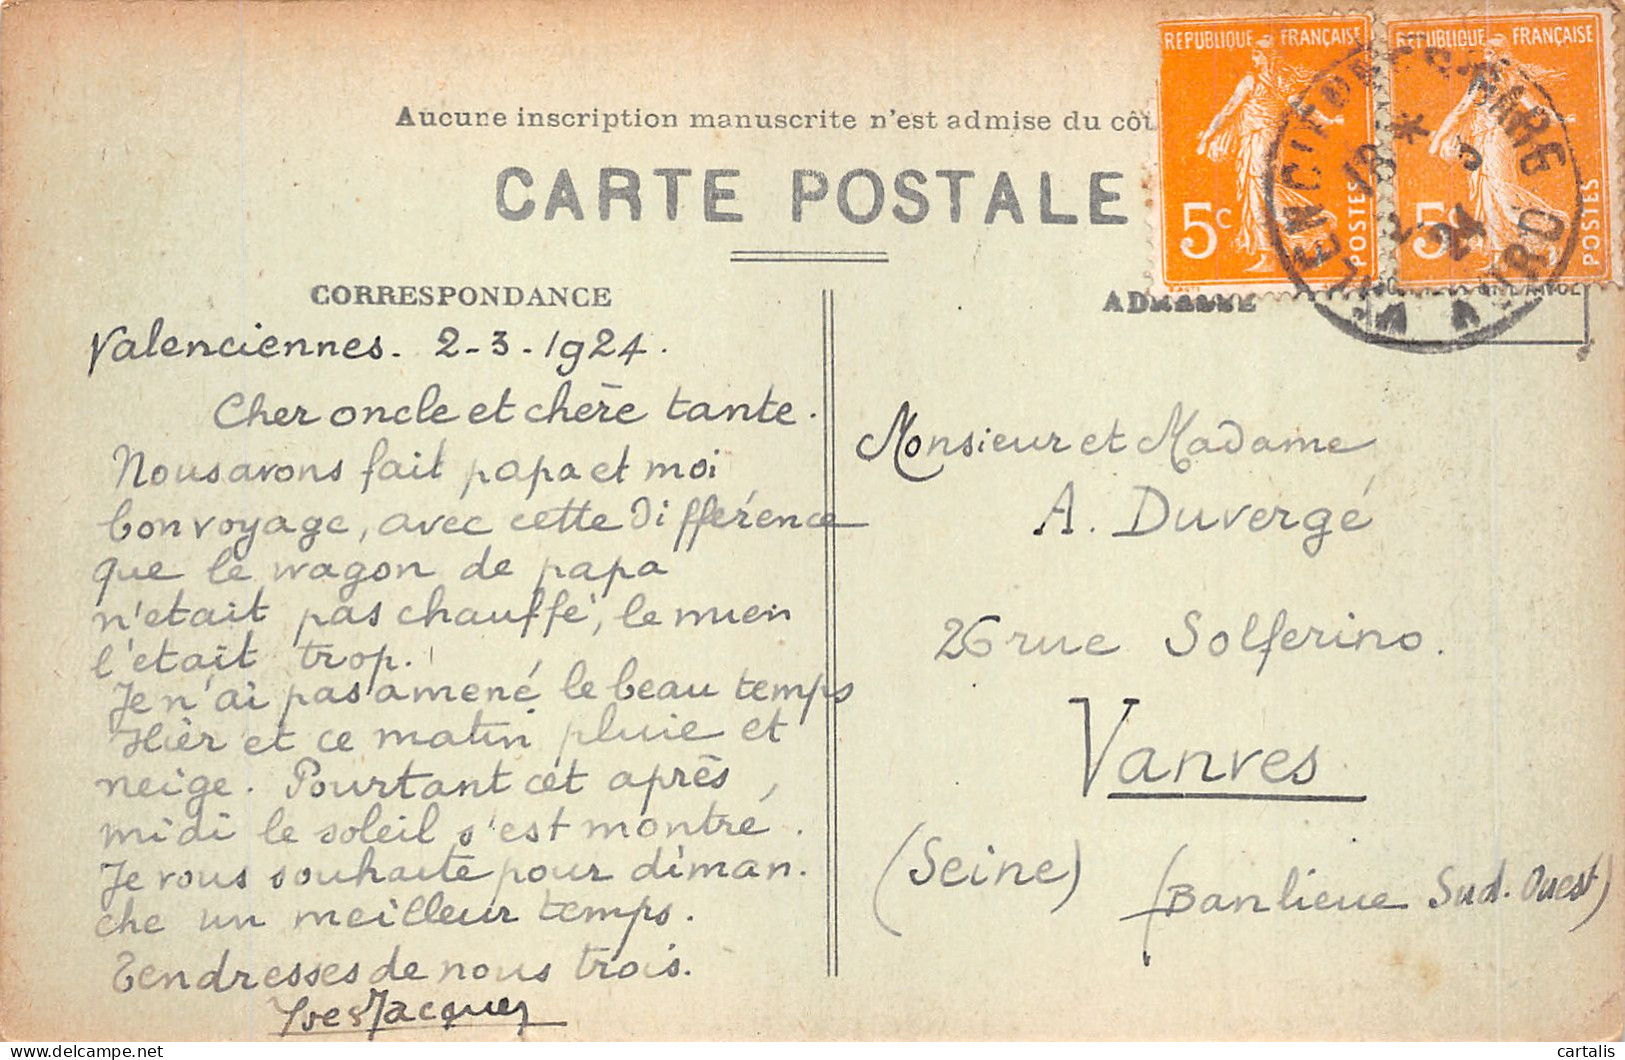 Aucune inscription manuscrite n'est admise du côt
CARTE POSTALE
REPUBLIQUE FRANÇAISE
5c
POSTES
REPUBLIQUE FRANÇAISE
5c
POSTES
VALENCIENNES GARE
NORD
18 *
2 3
24
CORRESPONDANCE
ADRESSE
Valenciennes. 2-3-1924.
Cher oncle et chère tante.
Nous avons fait papa et moi
bon voyage, avec cette différence
que le wagon de papa
n'etait pas chauffé, le mien
l'etait trop.
Je n'ai pas amené le beau temps
Hier et ce matin pluie et
neige. Pourtant cet après
midi le soleil s'est montré.
Je vous souhaite pour diman.
che un meilleur temps.
Tendresses de nous trois.
Yves Jacques
Monsieur et Madame
A. Duvergé
26 rue Solferino.
Vanves
(Seine) (Banlieue Sud. Ouest)
cartalis